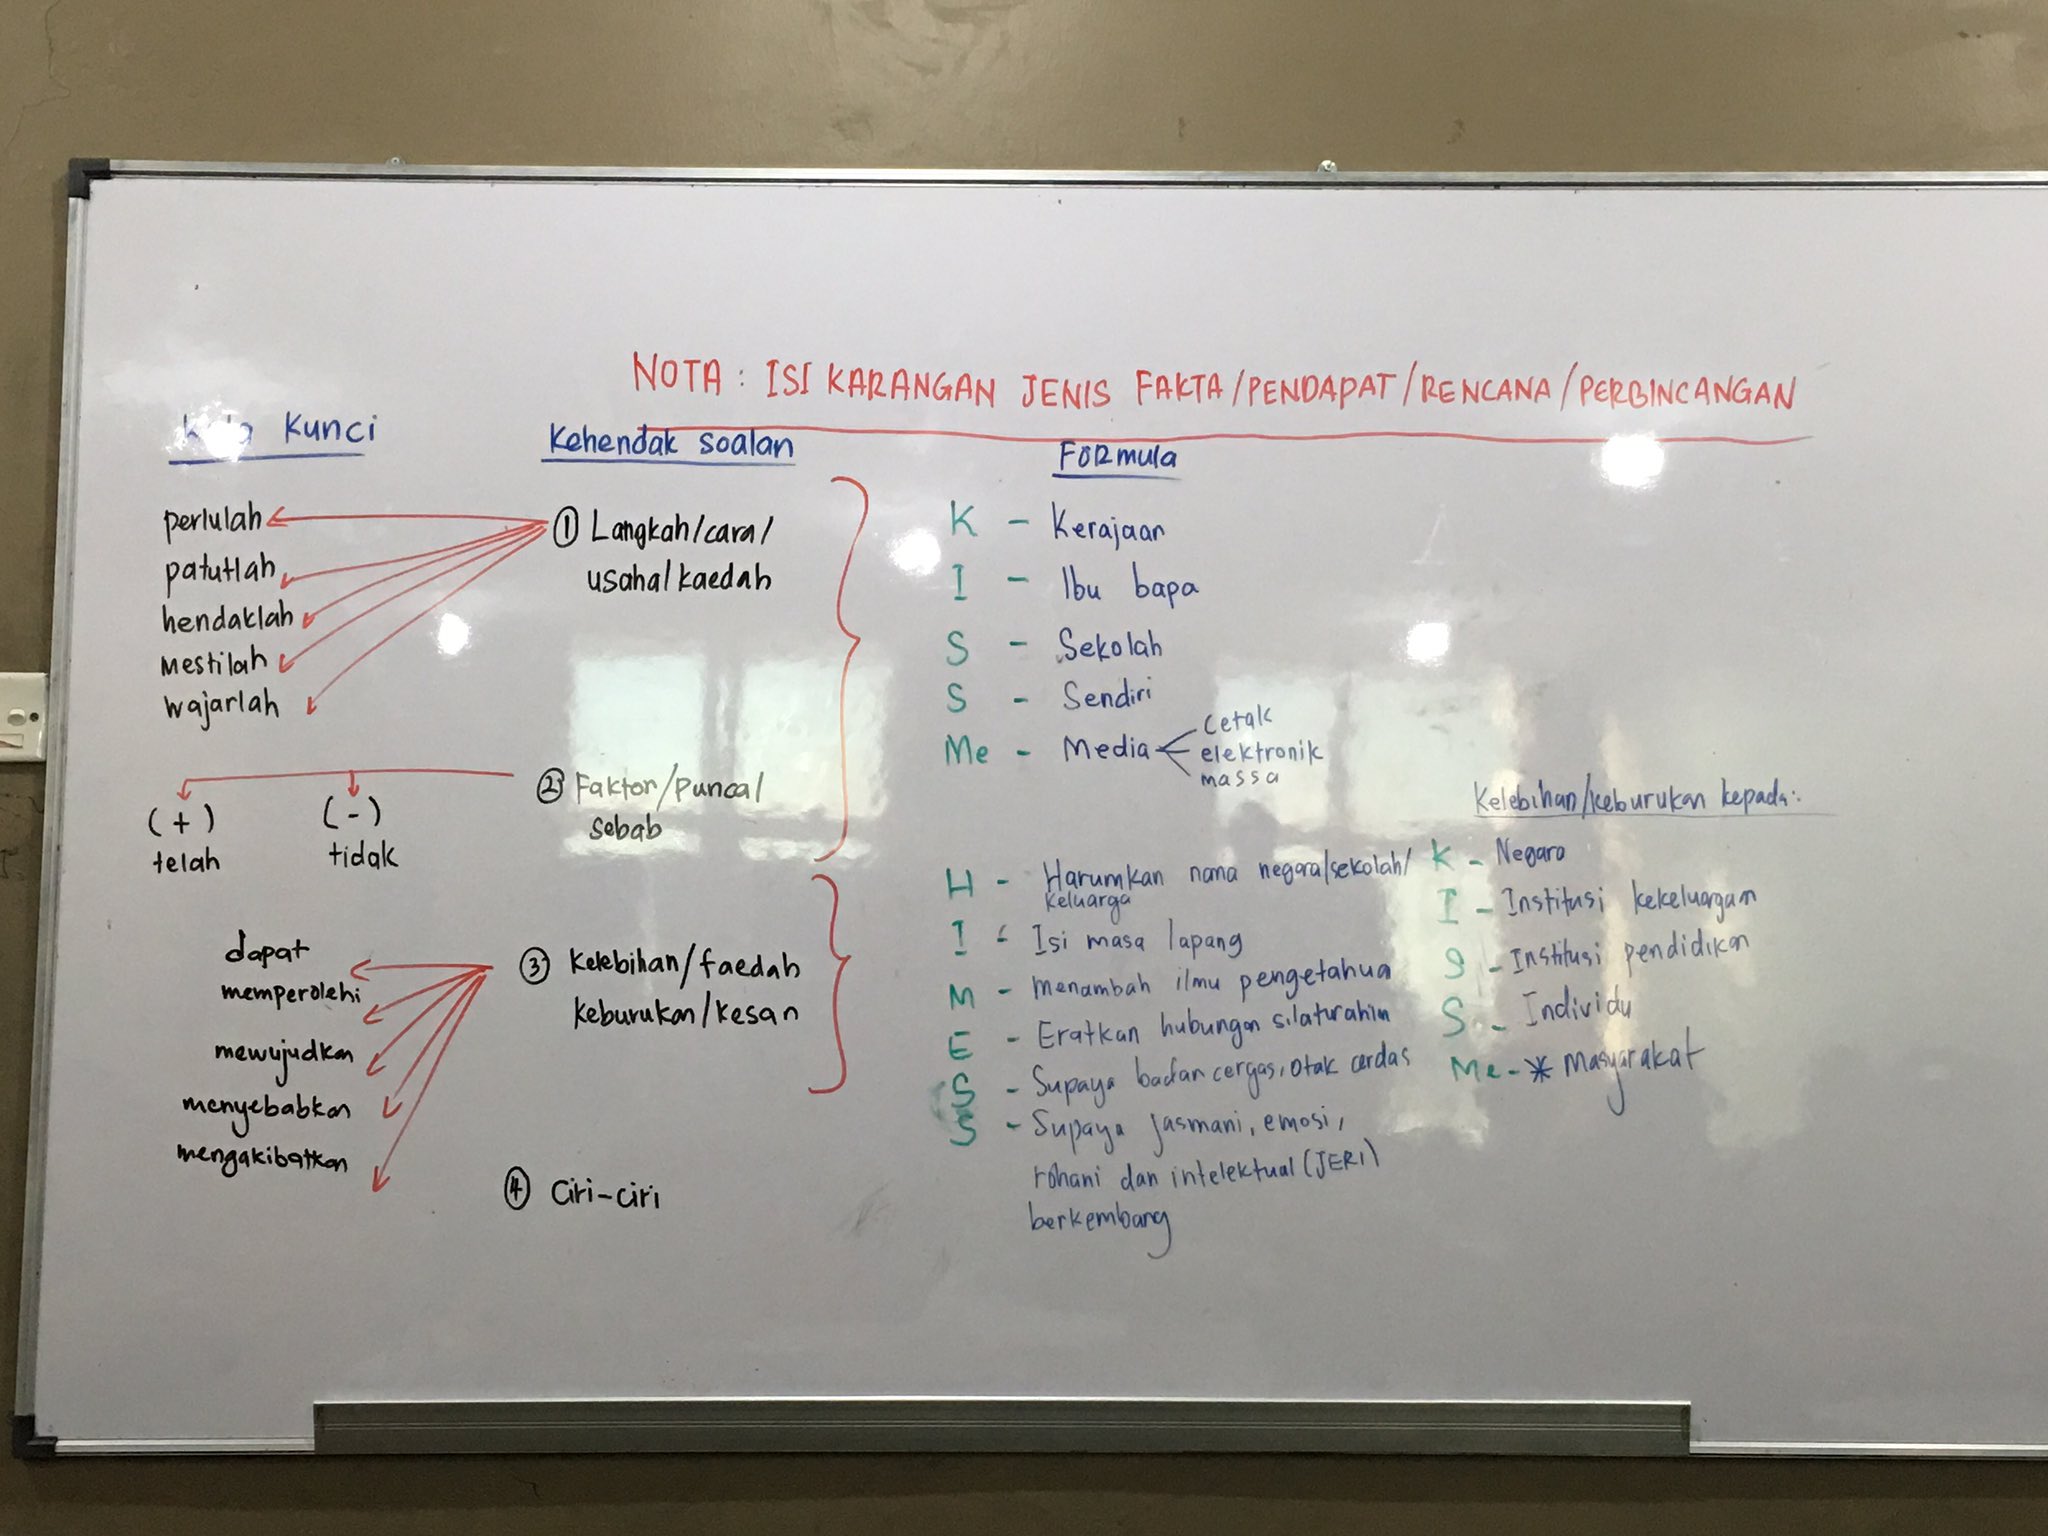 NOTA : ISI KARANGAN JENIS FAKTA/PENDAPAT/RENCANA/PERBINCANGAN
Kunci
perlulah
patutlah
hendaklah
mestilah
wajarlah
(+)
telah
(-)
tidak
dapat
memperolehi
mewujudkan
menyebabkan
mengakibatkan
Kehendak soalan
① Langkah/cara/
usaha/kaedah
② Faktor/punca/
sebab
③ Kelebihan/faedah
keburukan/kesan
④ Ciri-ciri
Formula
K - Kerajaan
I - Ibu bapa
S - Sekolah
S - Sendiri
Me - Media
cetak
elektronik
massa
H - Harumkan nama negara/sekolah/
keluarga
I - Isi masa lapang
M - menambah ilmu pengetahua
E - Eratkan hubungan silaturahim
S - Supaya badan cergas, otak cerdas
S - Supaya jasmani, emosi,
rohani dan intelektual (JERI)
berkembang
Kelebihan/keburukan kepada:
K - Negara
I - Institusi kekeluargaan
S - Institusi pendidikan
S - Individu
Me - * Masyarakat